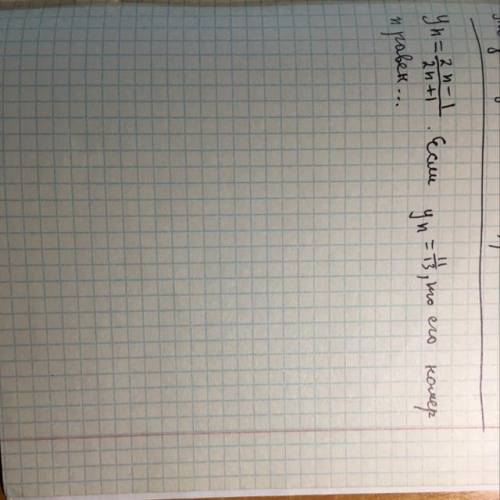 yn = 2n-1/2n+1. Если yn = 11/13, то его номер
n равен...